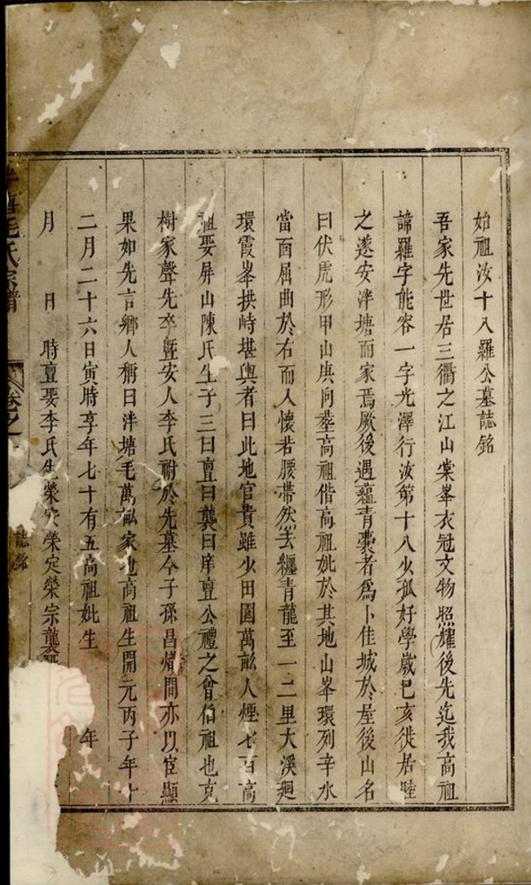 始祖汝十八羅公墓誌銘
吾家先世居三衢之江山棠峯衣冠文物照耀後先迄我高祖
諱羅字能容一字光澤行汝第十八少孤好學歲己亥徙居睦
之遂安泮塘而家焉厥後遇蘊青囊者為卜佳城於屋後山名
曰伏虎形甲山庚向塟高祖偕高祖妣於其地山峯環列辛水
當面屈曲於右而入懷若腰帶然去纏青龍至一二里大溪廻
環霞峯拱峙堪輿者曰此地官貴雖少田園萬畝人煙七百高
祖娶屏山陳氏生子三曰亶曰龔曰庠亶公禮之曾伯祖也克
樹家聲先卒曁安人李氏祔於先墓今子孫昌熾間亦以宦顯
果如先言鄉人稱曰泮塘毛萬畝家也高祖生開元丙子年十
二月二十六日寅時享年七十有五高祖妣生 年
月 日 時亶娶李氏生榮 榮定榮宗龔
毛氏宗譜 卷之 誌銘